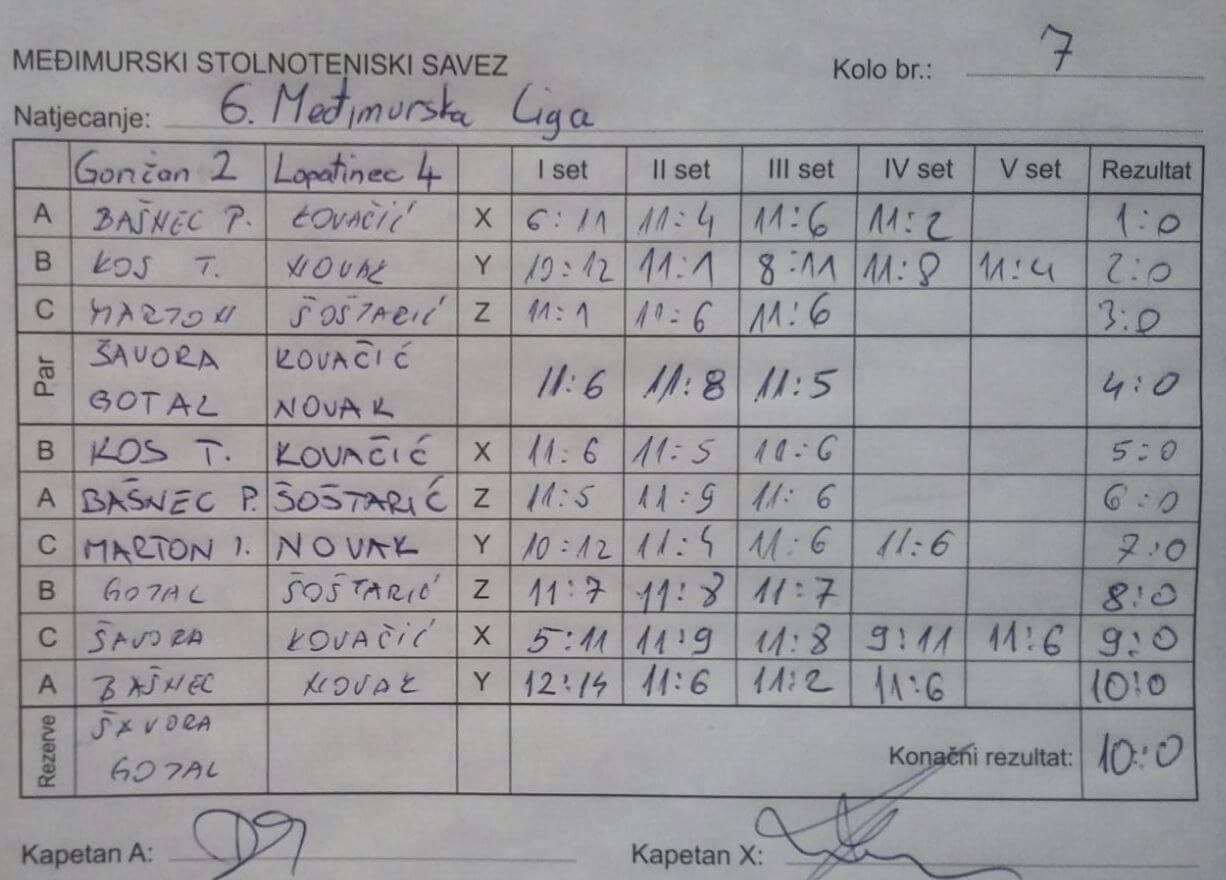 MEĐIMURSKI STOLNOTENISKI SAVEZ
Kolo br.: 7
Natjecanje: 6. Međimurska Liga
Goričan 2 Lopatinec 4 I set II set III set IV set V set Rezultat
A BAŠNEC P. KOVAČIĆ X 6:11 11:4 11:6 11:2 1:0
B KOS T. NOVAK Y 10:12 11:1 8:11 11:8 11:4 2:0
C MARTON ŠOŠTARIĆ Z 11:1 11:6 11:6 3:0
Par ŠAVORA KOVAČIĆ 11:6 11:8 11:5 4:0
GOTAL NOVAK
B KOS T. KOVAČIĆ X 11:6 11:5 11:6 5:0
A BAŠNEC P. ŠOŠTARIĆ Z 11:5 11:9 11:6 6:0
C MARTON I. NOVAK Y 10:12 11:5 11:6 11:6 7:0
B GOTAL ŠOŠTARIĆ Z 11:7 11:8 11:7 8:0
C ŠAVORA KOVAČIĆ X 5:11 11:9 11:8 9:11 11:6 9:0
A BAŠNEC NOVAK Y 12:14 11:6 11:2 11:6 10:0
Rezerve ŠAVORA
GOTAL
Konačni rezultat: 10:0
Kapetan A: Kapetan X: